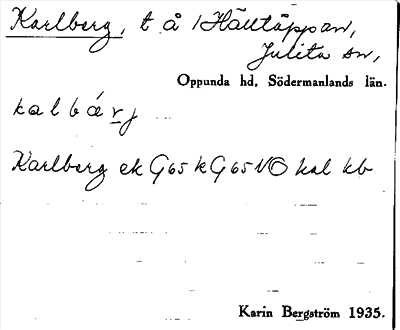 Karlberg, t å 1 Hälltäppan,
Julita sn,
Oppunda hd, Södermanlands län.
kalbárj
Karlberg ek G65 k G65 NO kal kb
Karin Bergström 1935.